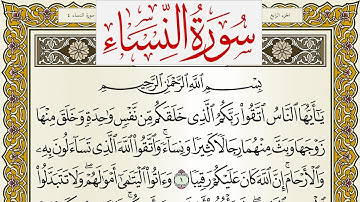 الجزء الرابع
سورة النساء ٤
سُورَةُ النِّسَاءِ
بِسْمِ اللَّهِ الرَّحْمَٰنِ الرَّحِيمِ
يَٰٓأَيُّهَا ٱلنَّاسُ ٱتَّقُوا۟ رَبَّكُمُ ٱلَّذِى خَلَقَكُم مِّن نَّفْسٍ وَٰحِدَةٍ وَخَلَقَ مِنْهَا
زَوْجَهَا وَبَثَّ مِنْهُمَا رِجَالًا كَثِيرًا وَنِسَآءً ۚ وَٱتَّقُوا۟ ٱللَّهَ ٱلَّذِى تَسَآءَلُونَ بِهِۦ
وَٱلْأَرْحَامَ ۚ إِنَّ ٱللَّهَ كَانَ عَلَيْكُمْ رَقِيبًا ١ وَءَاتُوا۟ ٱلْيَتَٰمَىٰٓ أَمْوَٰلَهُمْ ۖ وَلَا تَتَبَدَّلُوا۟